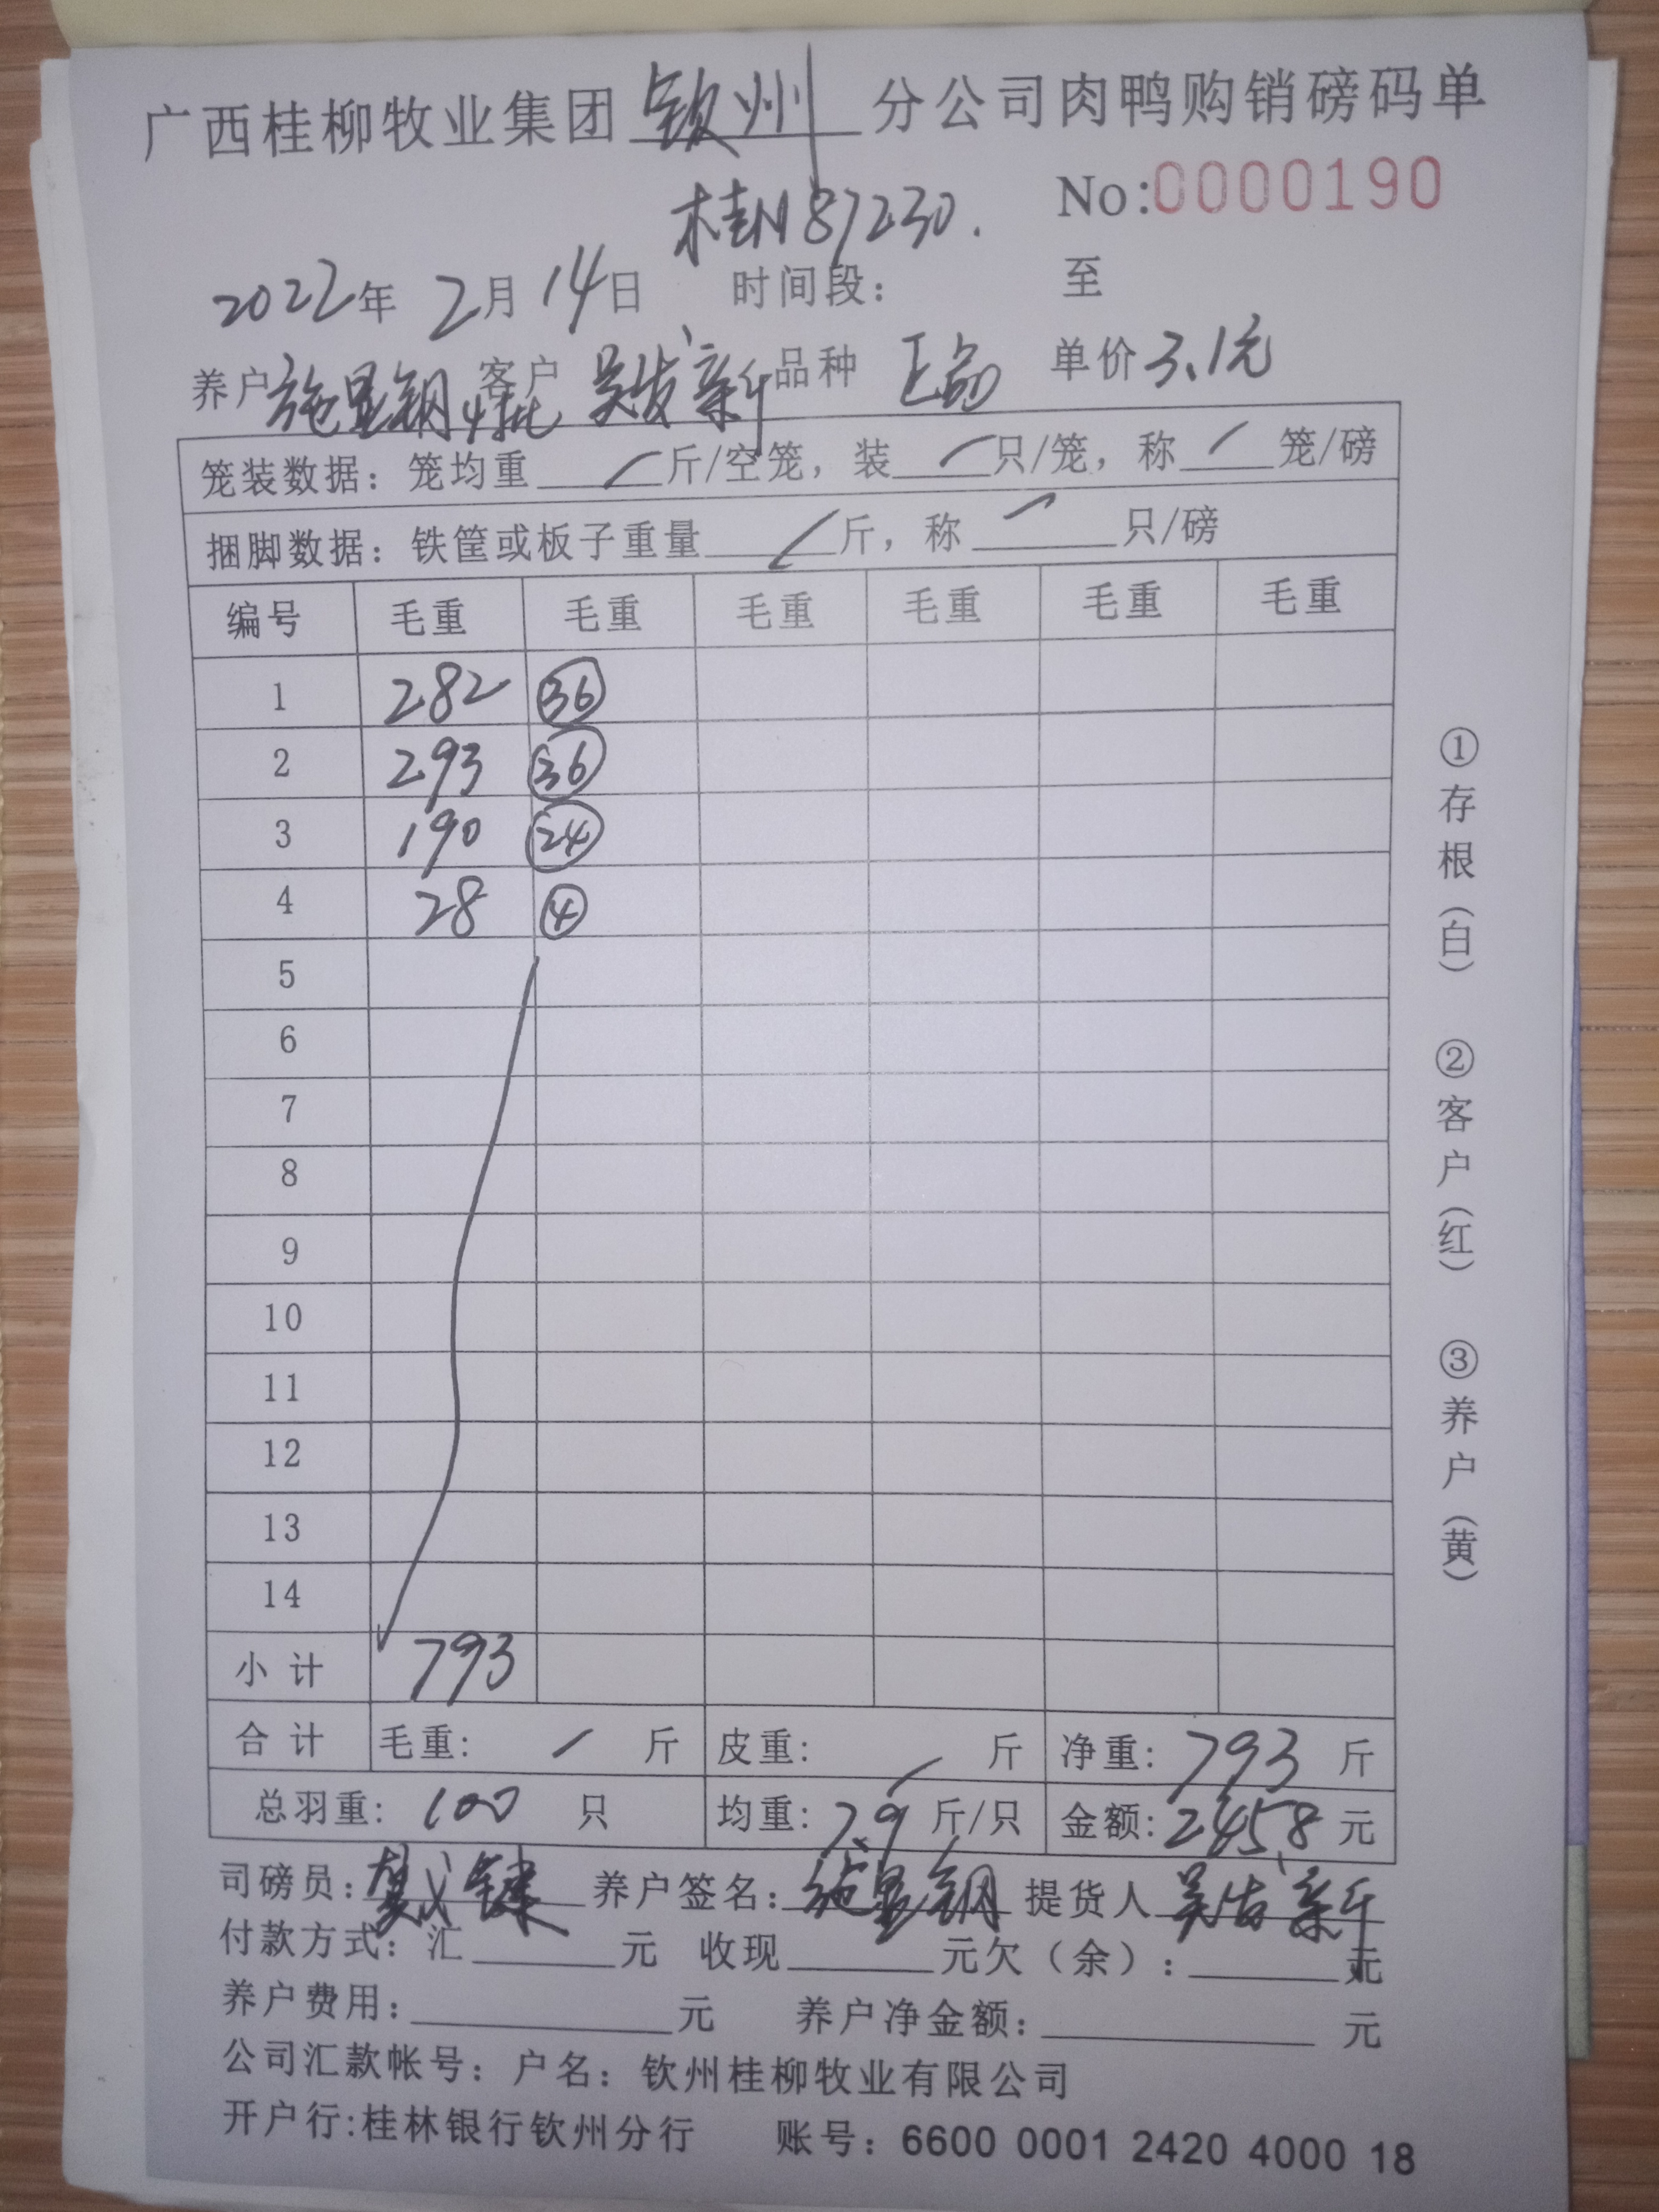 广西桂柳牧业集团 钦州 分公司肉鸭购销磅码单
桂N87230. No:0000190
2022年 2月 14日 时间段: 至
养户 施显钢 4批 客户 吴发新 品种 正品 单价 3.1元
笼装数据: 笼均重 / 斤/空笼, 装 / 只/笼, 称 / 笼/磅
捆脚数据: 铁筐或板子重量 / 斤, 称 / 只/磅
编号 毛重 毛重 毛重 毛重 毛重 毛重
1 282 36
2 293 36
3 190 24
4 28 4
5
6
7
8
9
10
11
12
13
14
小计 793
合计 毛重: / 斤 皮重: / 斤 净重: 793 斤
总羽重: 100 只 均重: 7.9 斤/只 金额: 2458 元
司磅员: 养户签名: 施显钢 提货人 吴发新
付款方式: 汇 元 收现 元欠(余): 元
养户费用: 元 养户净金额: 元
公司汇款帐号: 户名: 钦州桂柳牧业有限公司
开户行:桂林银行钦州分行 账号: 6600 0001 2420 4000 18
①存根(白) ②客户(红) ③养户(黄)